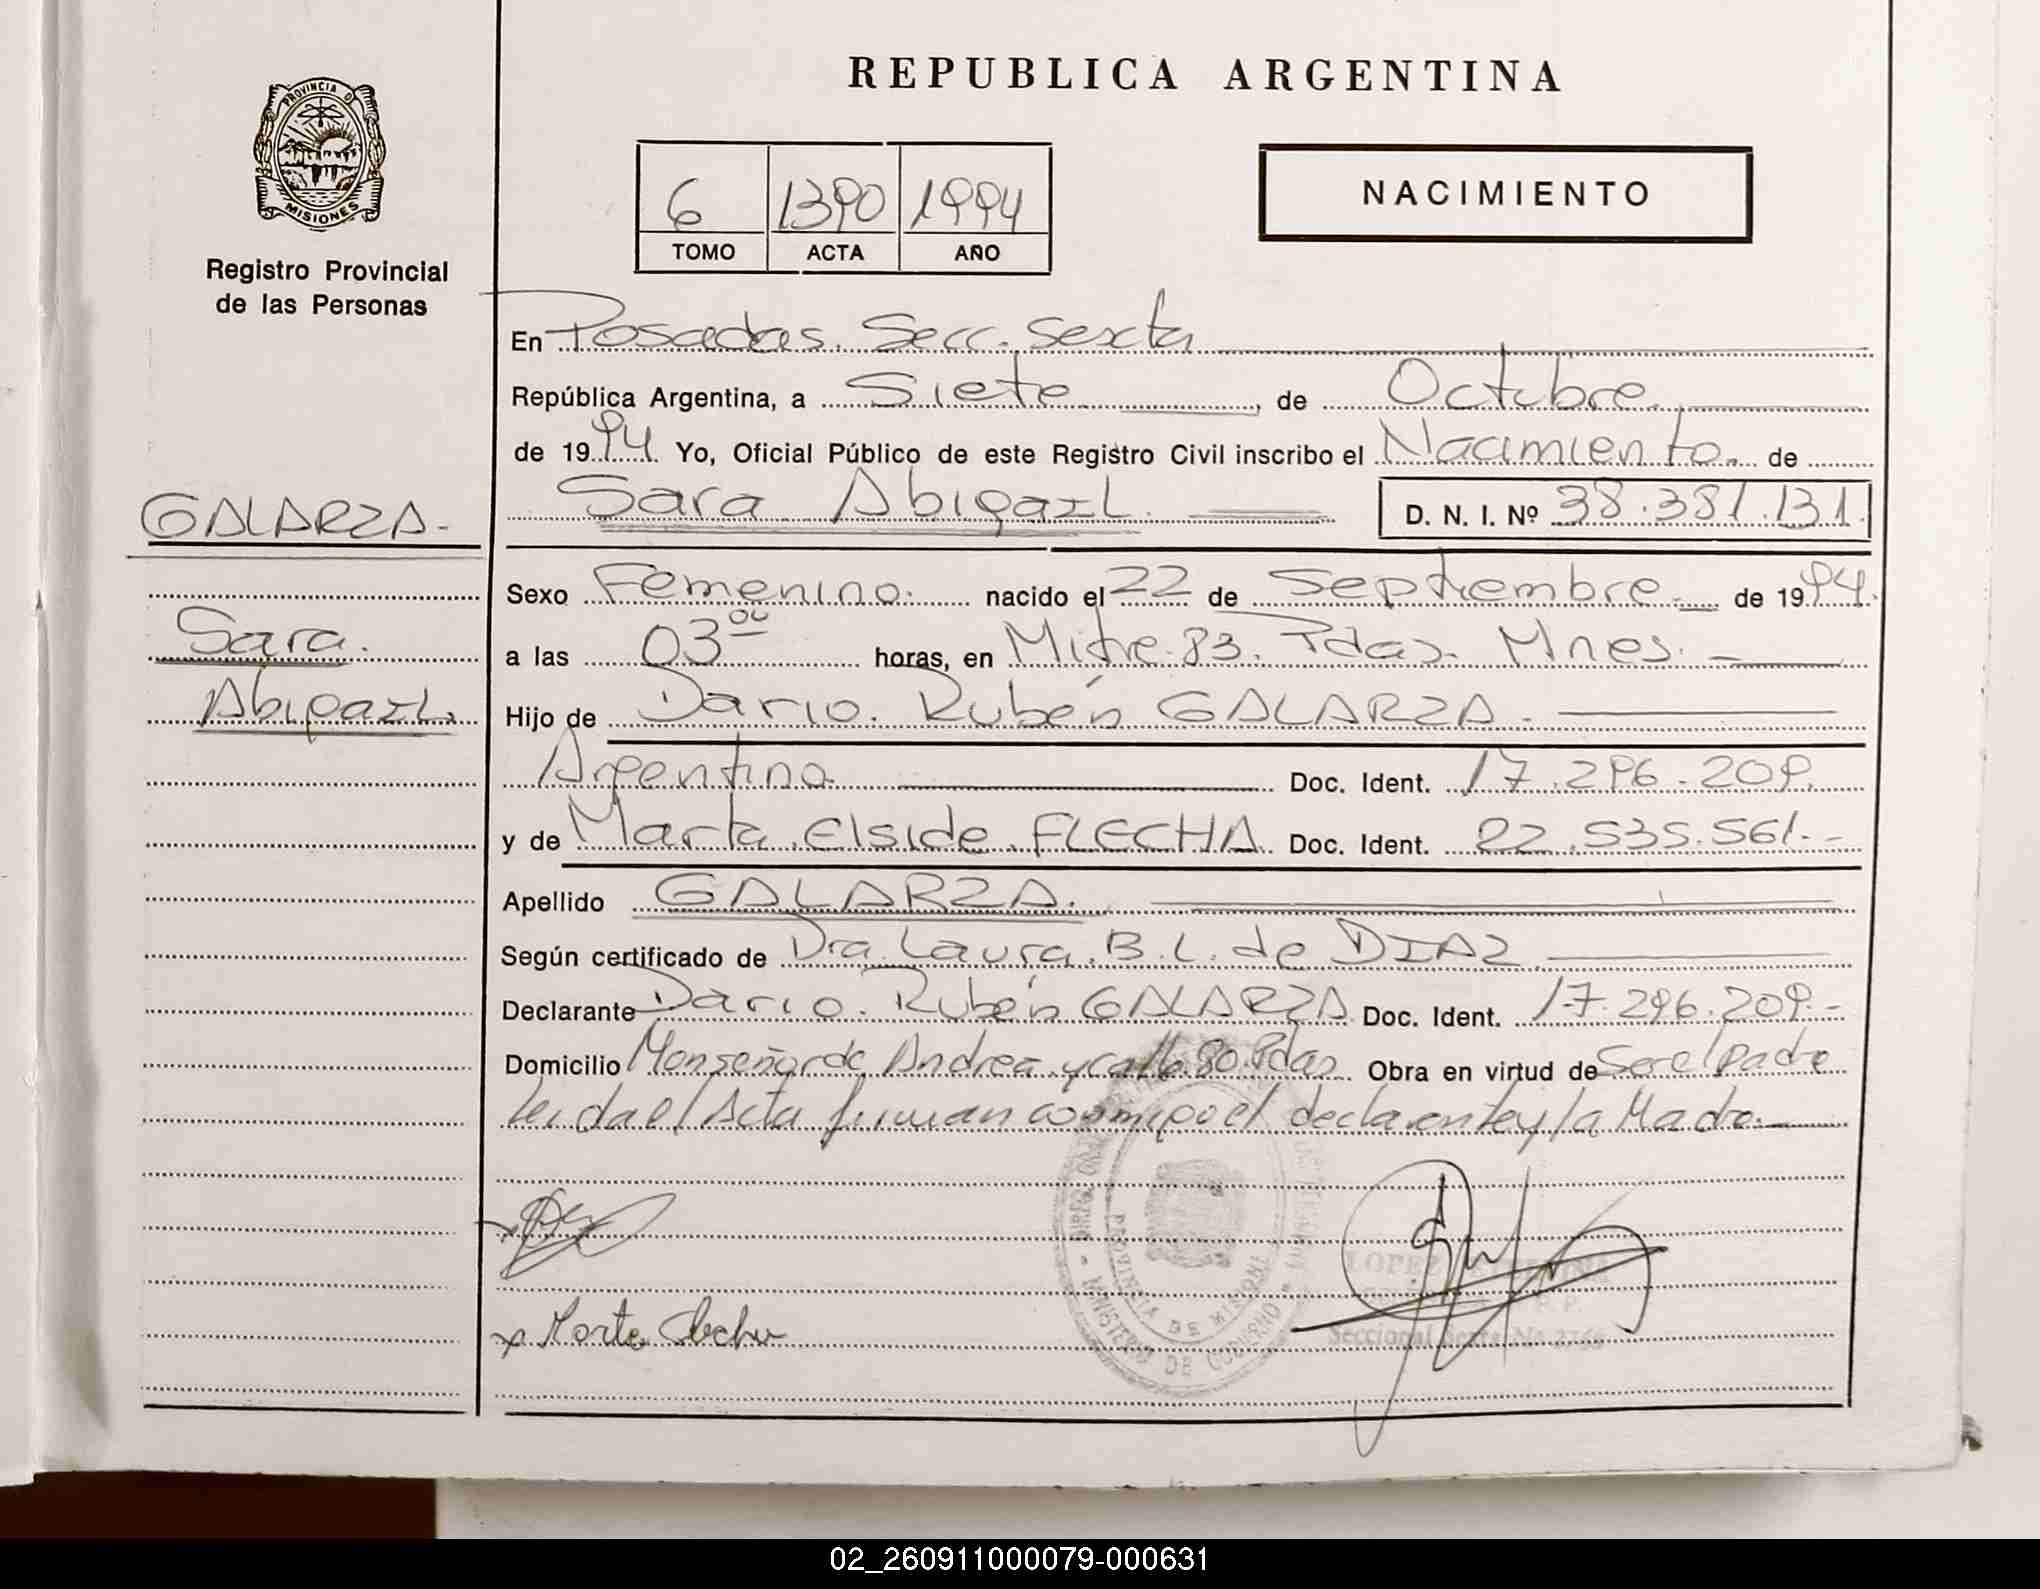 REPUBLICA ARGENTINA
PROVINCIA D
MISIONES
Registro Provincial
de las Personas
6 1390 1994
TOMO ACTA AÑO
NACIMIENTO
En Posadas. Secc. Sexta
República Argentina, a Siete, de Octubre
de 1994. Yo, Oficial Público de este Registro Civil inscribo el Nacimiento. de
Sara Abigail. D. N. I. Nº 38.381.131.
GALARZA.-
Sara.
Abigail.
Sexo Femenino. nacido el 22 de Septiembre. de 1994.
a las 03 00 horas, en Mitre. 83. Pdas. Mnes.
Hijo de Dario. Rubén GALARZA.
Argentina Doc. Ident. 17.296.209.
y de Marta Elside FLECHA Doc. Ident. 22.535.561.-
Apellido GALARZA.
Según certificado de Dra. Laura. B. L. de DIAZ
Declarante Dario. Rubén GALARZA Doc. Ident. 17.296.209.-
Domicilio Monseñor de Andrea y calle 80. Pdas Obra en virtud de Ser el Padre
leida el Acta firman conmigo el declarante y la Madre.
x
x Marta Flecha
PROVINCIA DE MISIONES
MINISTERIO DE GOBIERNO
LOPEZ
Seccional Sexta
02_260911000079-000631